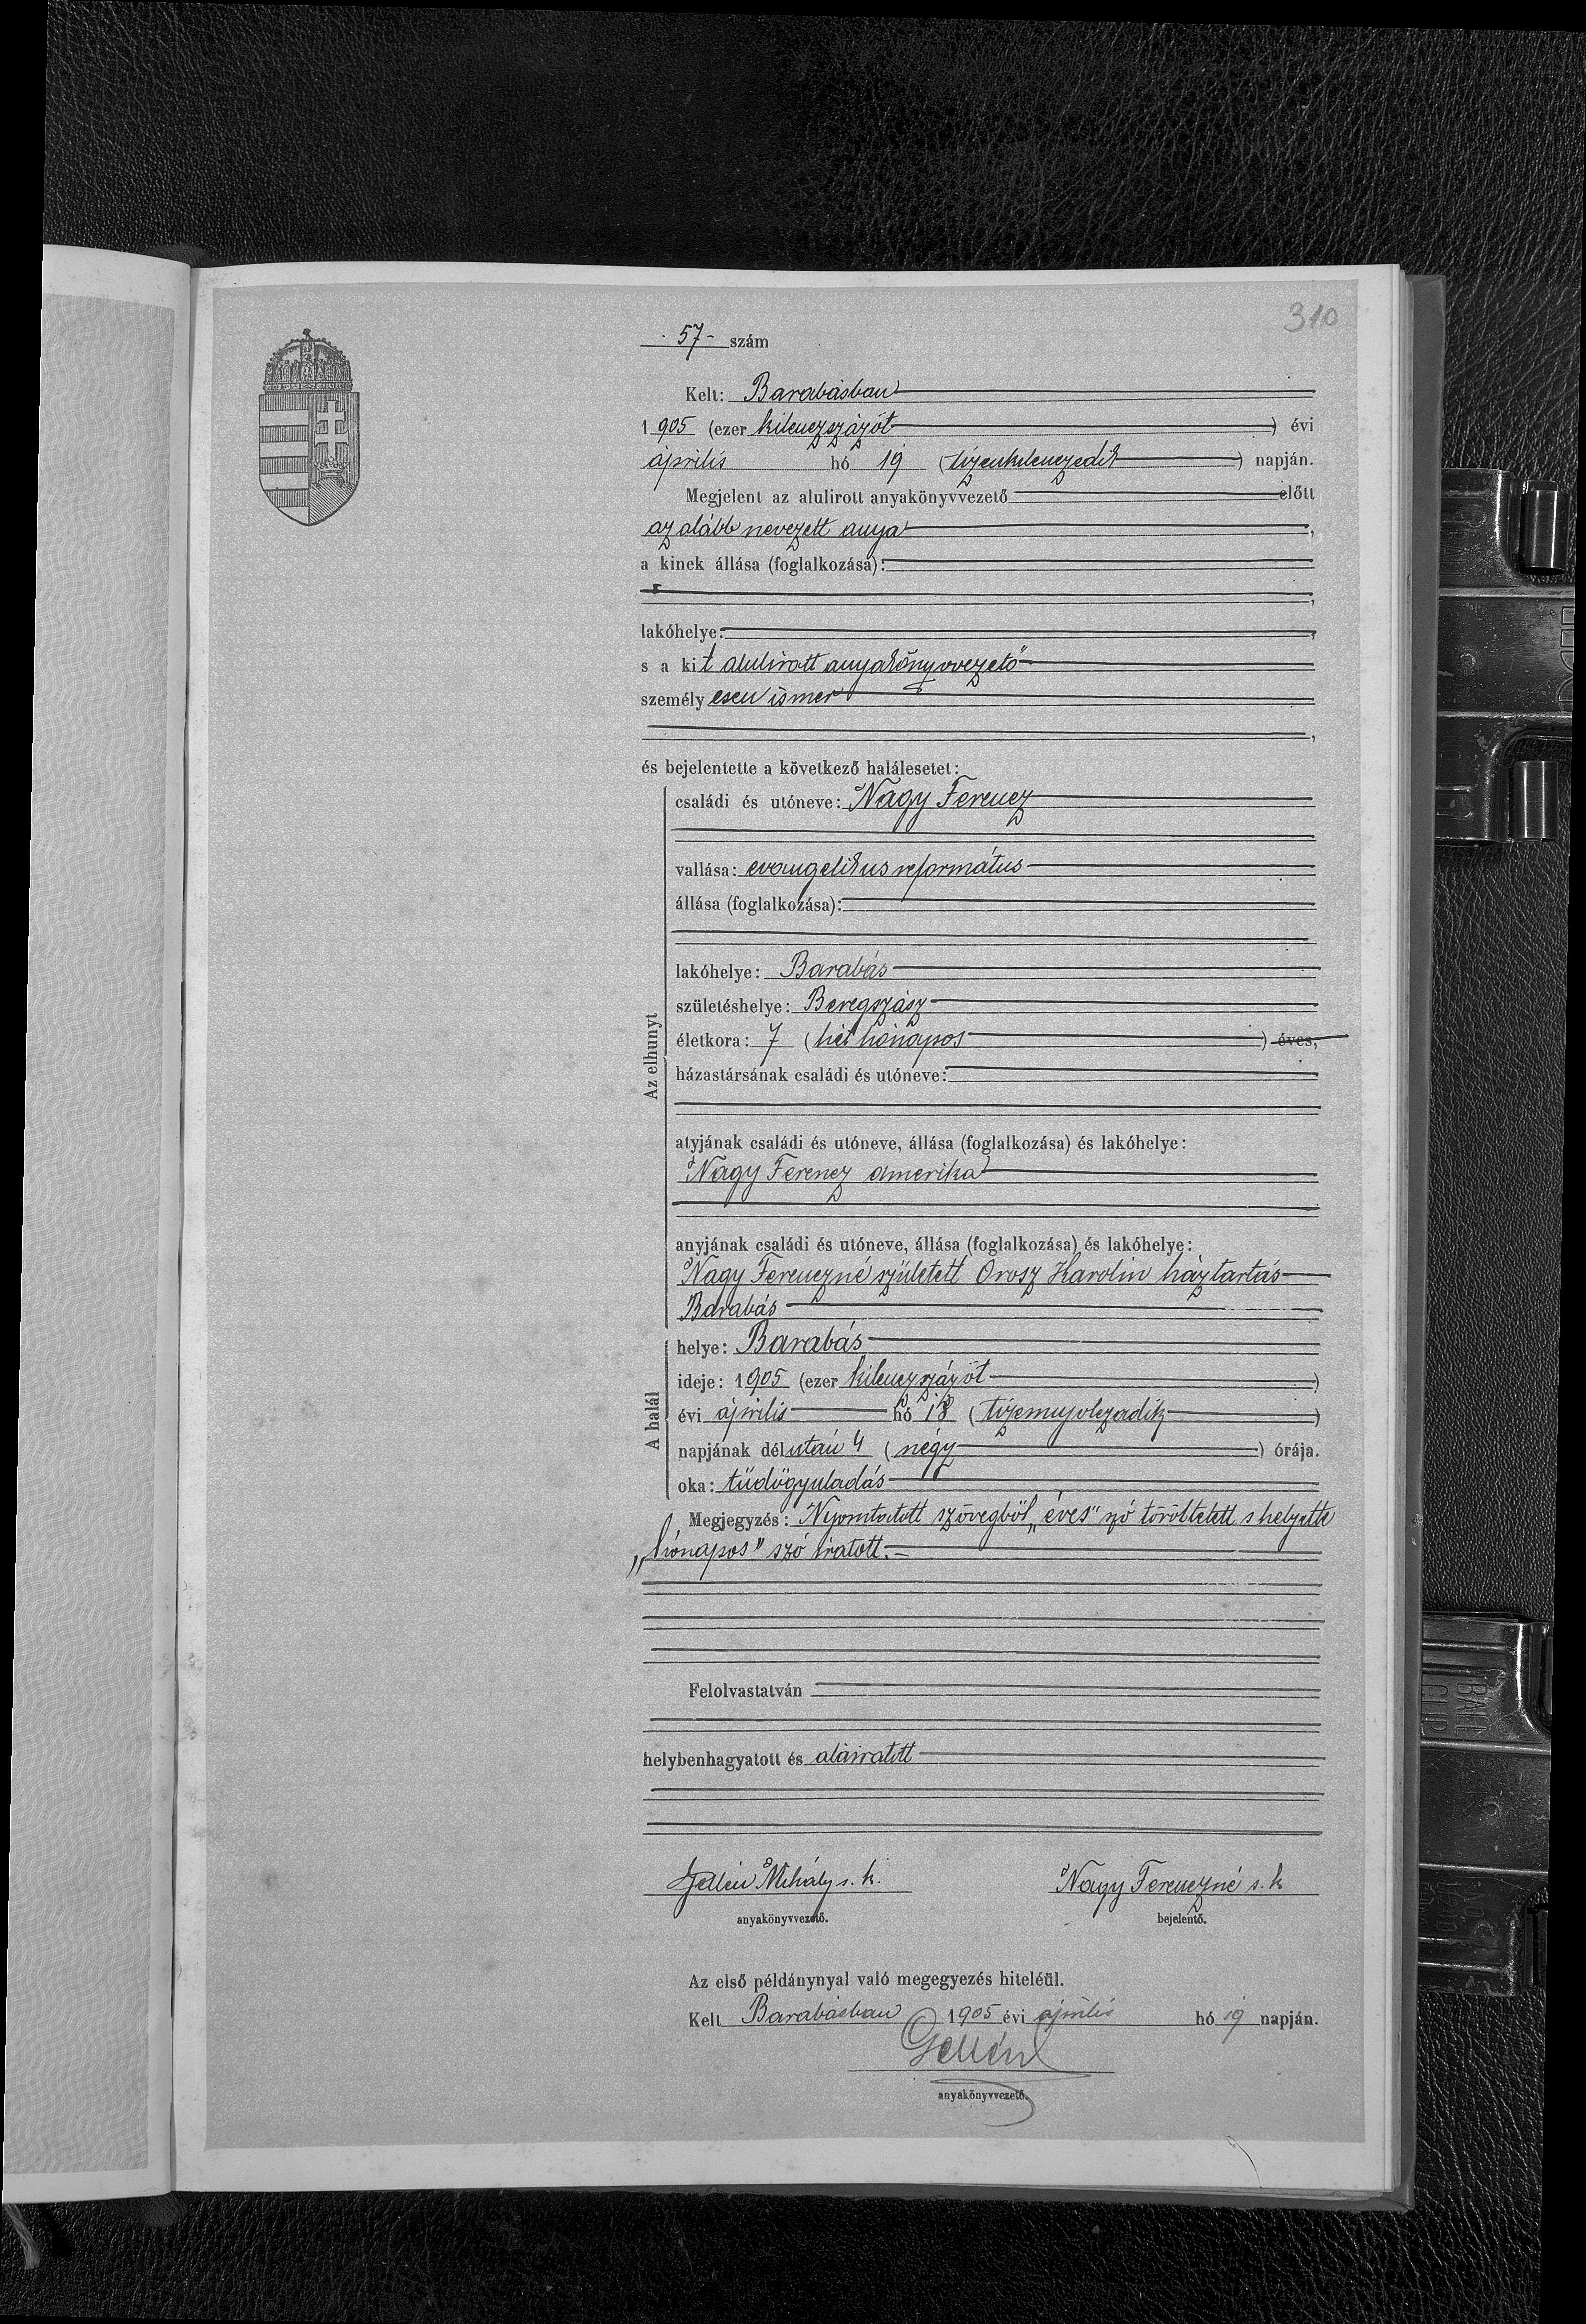 310
57 - szám
Kelt: Barabásban
1905 (ezer kilenczszázöt) évi
április hó 19 (tizenkilenczedik) napján.
Megjelent az alulirott anyakönyvvezető előtt
az alább nevezett anya,
a kinek állása (foglalkozása):
lakóhelye:
s a kit alulirott anyakönyvvezető
személyesen ismer,
és bejelentette a következő halálesetet:
Az elhunyt
családi és utóneve: Nagy Ferencz
vallása: evangelikus református
állása (foglalkozása):
lakóhelye: Barabás
születéshelye: Beregszász
életkora: 7 (hét hónapos) éves,
házastársának családi és utóneve:
atyjának családi és utóneve, állása (foglalkozása) és lakóhelye:
Nagy Ferencz amerika
anyjának családi és utóneve, állása (foglalkozása) és lakóhelye:
Nagy Ferenczné született Orosz Karolin háztartás
Barabás
A halál
helye: Barabás
ideje: 1905 (ezer kilenczszázöt)
évi április hó 18 (tizennyolczadik)
napjának délután 4 (négy) órája.
oka: tüdőgyuladás
Megjegyzés: Nyomtatott szövegből „éves" szó töröltetett s helyette
„hónapos" szó iratott. -
Felolvastatván
helybenhagyatott és aláiratott
Mihály s. k. Nagy Ferenczné s. k
anyakönyvvezető. bejelentő.
Az első példánynyal való megegyezés hiteléül.
Kelt Barabásban 1905 évi április hó 19 napján.
Gellén
anyakönyvvezető.